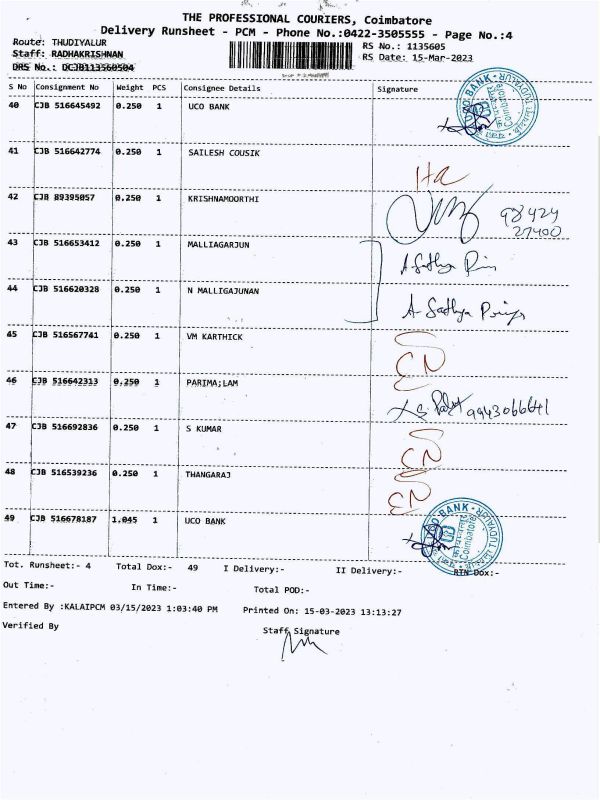 THE PROFESSIONAL COURIERS, Coimbatore
Delivery Runsheet - PCM - Phone No.:0422-3505555 - Page No.:4
Route: THUDIYALUR
Staff: RADHAKRISHNAN
DRS No.: DCJB113560504
RS No.: 1135605
RS Date: 15-Mar-2023
S No Consignment No Weight PCS Consignee Details Signature
40 CJB 516645492 0.250 1 UCO BANK
41 CJB 516642774 0.250 1 SAILESH COUSIK
42 CJB 89395057 0.250 1 KRISHNAMOORTHI 98424
27400
43 CJB 516653412 0.250 1 MALLIAGARJUN
44 CJB 516620328 0.250 1 N MALLIGAJUNAN A Sathya Priya
45 CJB 516567741 0.250 1 VM KARTHICK
46 CJB 516642313 0.250 1 PARIMA;LAM 9943066641
47 CJB 516692836 0.250 1 S KUMAR
48 CJB 516539236 0.250 1 THANGARAJ
49 CJB 516678187 1.045 1 UCO BANK
Tot. Runsheet:- 4 Total Dox:- 49 I Delivery:- II Delivery:- RTN Dox:-
Out Time:- In Time:- Total POD:-
Entered By :KALAIPCM 03/15/2023 1:03:40 PM Printed On: 15-03-2023 13:13:27
Verified By Staff Signature